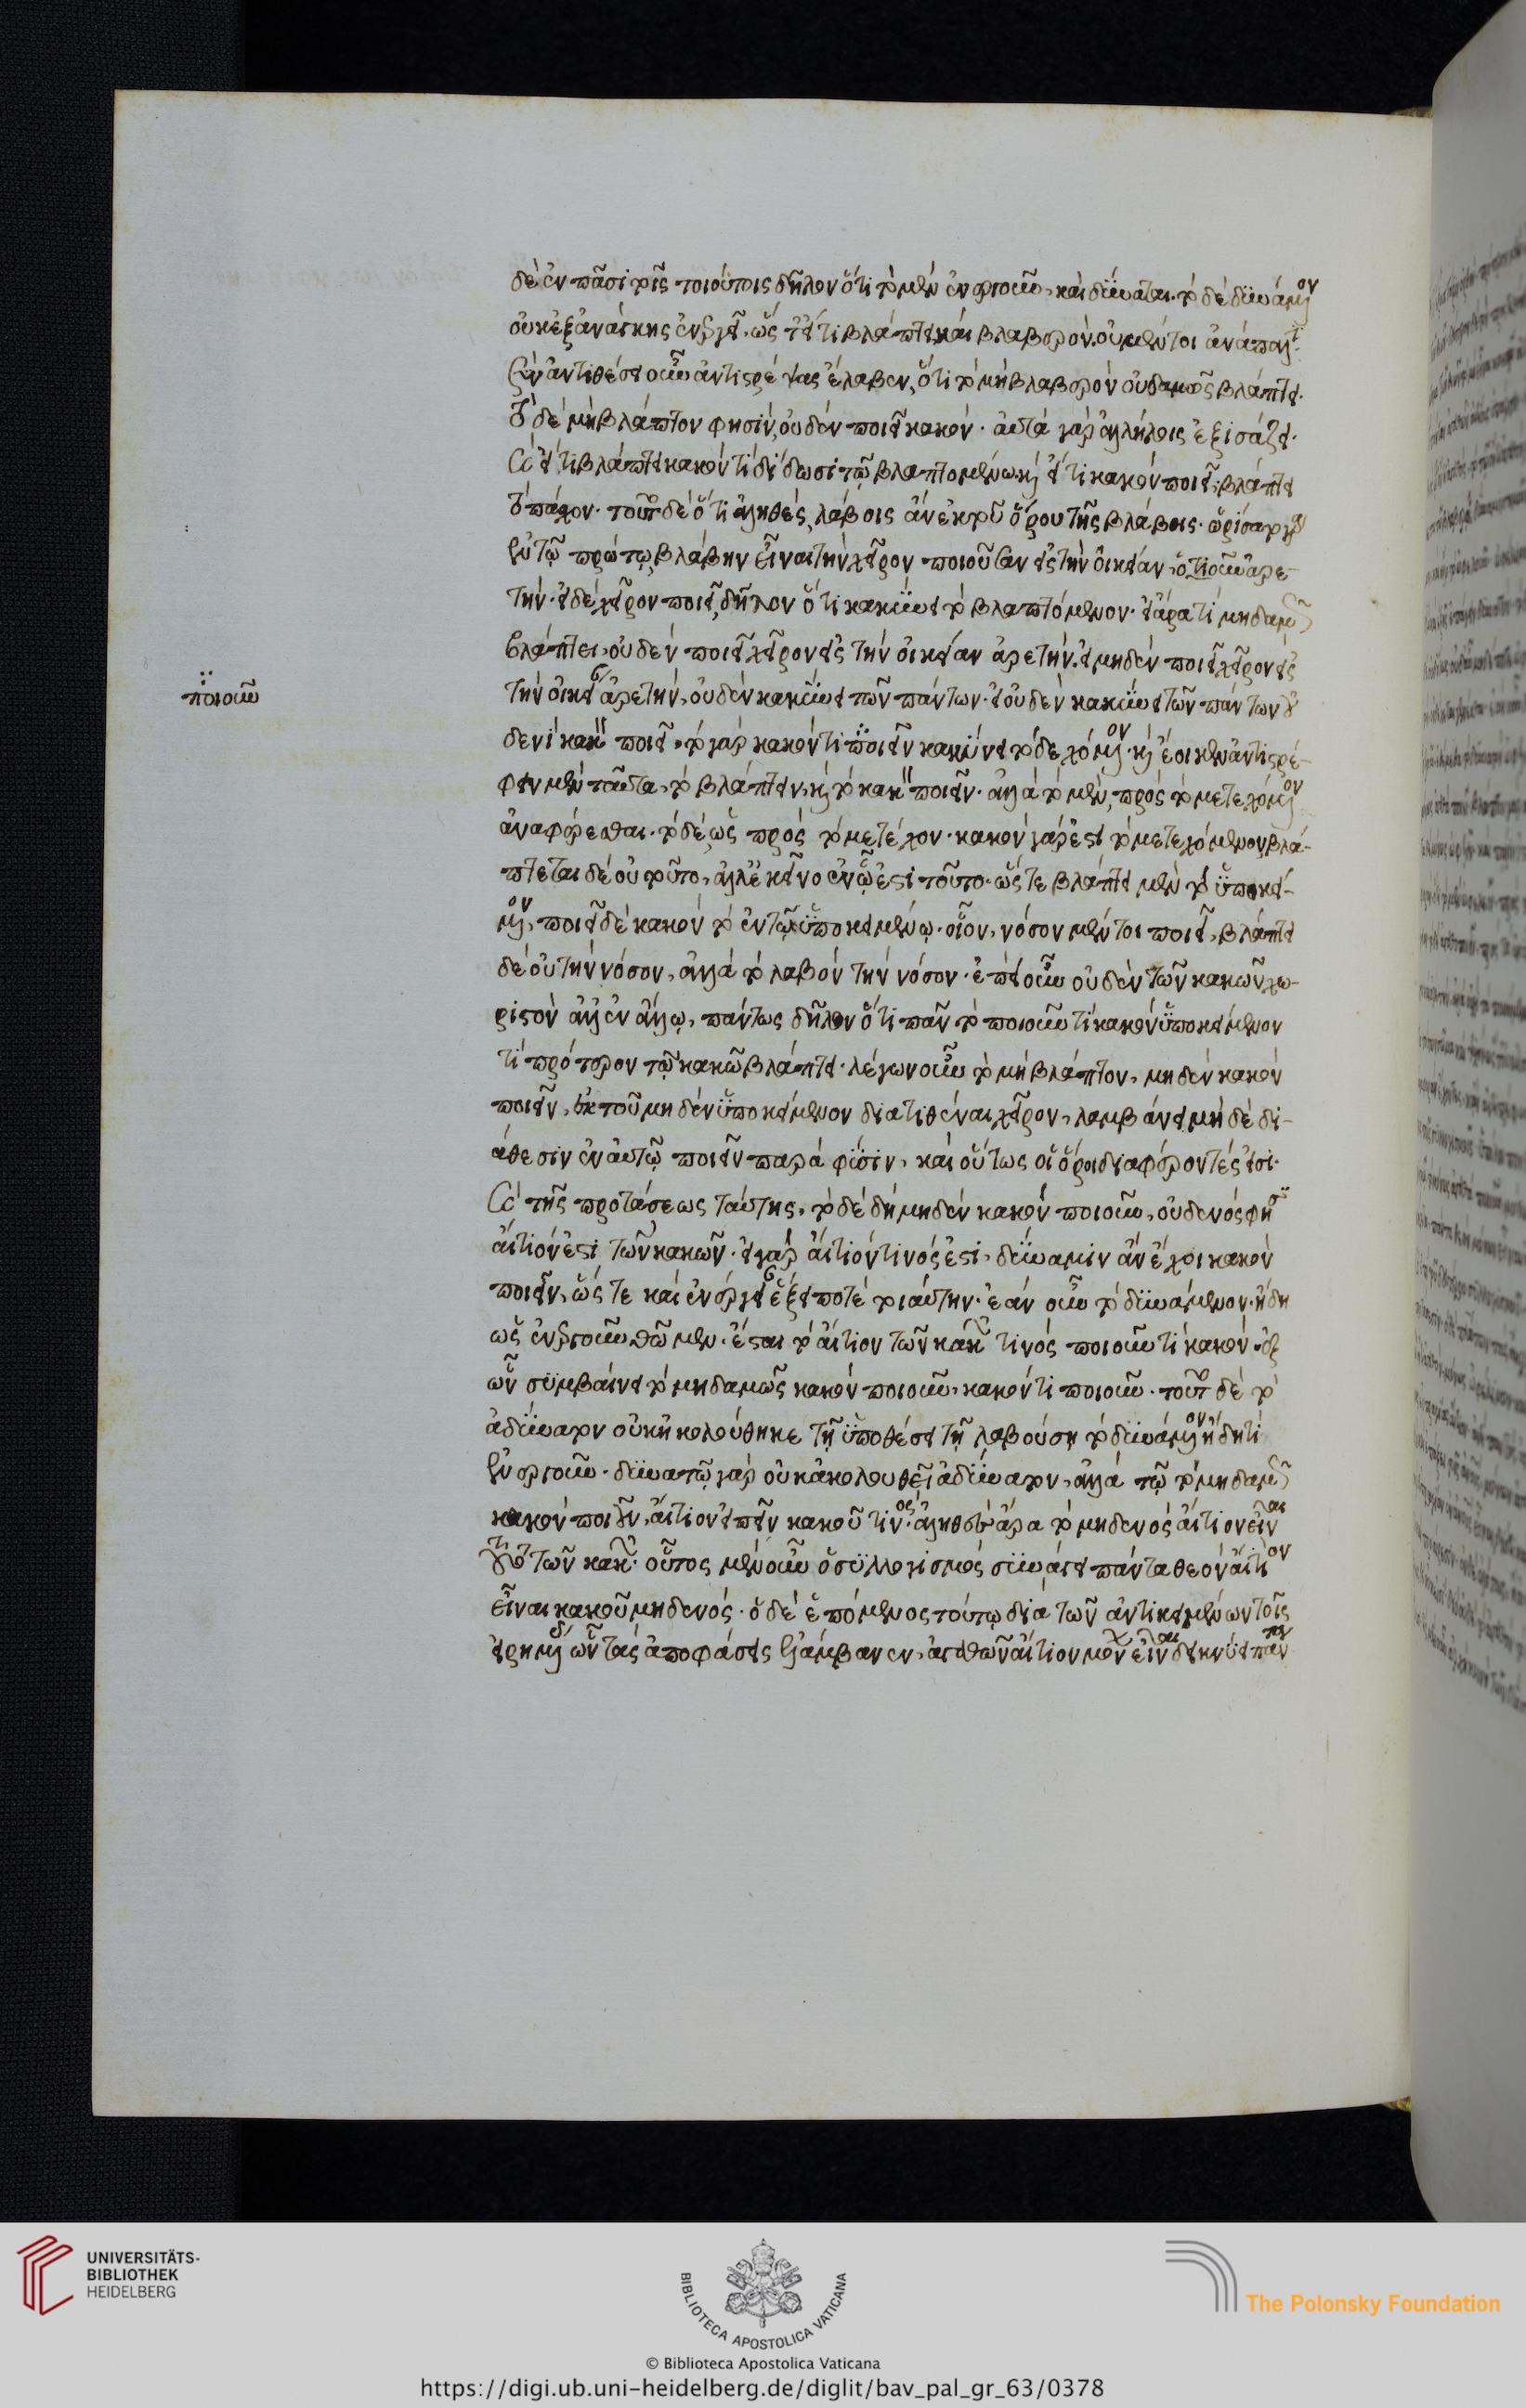 δὲ ἐν πᾶσι τοῖς τοιούτοις δῆλον ὅτι τὸ μὲν ἐνεργοῦν, καὶ δύναται. τὸ δὲ δυνάμενον
οὐκ ἐξ ἀνάγκης ἐνεργεῖ. ὡς εἴ τι βλάπτει καὶ βλαβερόν. οὐ μέντοι ἀνάπαλιν.
σὺν ἀντιθέσει οὖν ἀντιστρέψας ἔλαβεν, ὅτι τὸ μὴ βλαβερὸν οὐδαμῶς βλάπτει.
τὸ δὲ μὴ βλάπτον φησὶν, οὐδὲν ποιεῖ κακόν. αὐτὰ γὰρ ἀλλήλοις ἐξισάζει.
καὶ εἴ τι βλάπτει κακόν τι δίδωσι τῷ βλαπτομένω καὶ εἴ τι κακὸν ποιεῖ, βλάπτει
τὸ πάσχον. τοῦτο δὲ ὅτι ἀληθὲς, λάβοις ἂν ἐκ τοῦ ὅρου τῆς βλάβης. ὡρίσατο γὰρ
ἐν τῷ πρώτῳ, βλάβην εἶναι τὴν χεῖρον ποιοῦσαν εἰς τὴν οἰκείαν ὁτιοῦν ἀρε-
τήν. εἰ δὲ χεῖρον ποιεῖ, δῆλον ὅτι κακύνει τὸ βλαπτόμενον. εἰ ἄρα τι μηδαμῶς
βλάπτει, οὐδὲν ποιεῖ χεῖρον εἰς τὴν οἰκείαν ἀρετήν. εἰ μηδὲν ποιεῖ χεῖρον εἰς
τὴν οἰκείαν ἀρετήν, οὐδὲν κακύνει τῶν πάντων. εἰ οὐδὲν κακύνει τῶν πάντων οὐ
ποιοῦν
δενὶ κακὸν ποιεῖ. τὸ γὰρ κακόν τι ποιεῖν κακύνει τὸ δεχόμενον. καὶ ἔοικεν ἀντιστρέ-
φειν μὲν ταῦτα, τὸ βλάπτειν, καὶ τὸ κακὸν ποιεῖν. ἀλλὰ τὸ μὲν, πρὸς τὸ μετεχόμενον
ἀναφέρεσθαι. τὸ δὲ, ὡς πρὸς τὸ μετέχον. κακὸν γάρ ἐστι τὸ μετεχόμενον, βλά-
πτεται δὲ οὐ τοῦτο, ἀλλ' ἐκεῖνο ἐν ᾧ ἐστι τοῦτο. ὥστε βλάπτει μὲν τὸ ὑποκεί-
μενον, ποιεῖ δὲ κακὸν τὸ ἐν τῷ ὑποκειμένῳ. οἷον, νόσον μέντοι ποιεῖ, βλάπτει
δὲ οὐ τὴν νόσον, ἀλλὰ τὸ λαβὸν τὴν νόσον. ἐπεὶ οὖν οὐδὲν τῶν κακῶν χω-
ριστὸν ἀλλ' ἐν ἄλλῳ, πάντως δῆλον ὅτι πᾶν τὸ ποιοῦν τι κακὸν ὑποκείμενον
τι πρότερον τῷ κακῶ βλάπτει. λέγων οὖν τὸ μὴ βλάπτον, μηδὲν κακὸν
ποιεῖν, ἐκ τοῦ μηδὲν ὑποκείμενον διατιθέναι χεῖρον, λαμβάνει μηδὲ δι-
άθεσιν ἐν αὐτῷ ποιεῖν παρὰ φύσιν, καὶ οὕτως οἱ ὅροι διαφέροντές εἰσι.
καὶ τῆς προτάσεως ταύτης, τὸ δὲ δὴ μηδὲν κακὸν ποιοῦν, οὐδενὸς φησιν
αἴτιόν ἐστι τῶν κακῶν. εἰ γὰρ αἴτιόν τινός ἐστι, δύναμιν ἂν ἔχοι κακὸν
ποιεῖν, ὥστε καὶ ἐνέργειαν ἕξει ποτὲ τοιαύτην. ἐὰν οὖν τὸ δυνάμενον ἤδη
ὡς ἐνεργοῦν θῶμεν. ἔσται τὸ αἴτιον τῶν κακῶν τινὸς ποιοῦν τι κακόν. ἐξ
ὧν συμβαίνει τὸ μηδαμῶς κακὸν ποιοῦν, κακόν τι ποιοῦν. τοῦτο δὲ τὸ
ἀδύνατον οὐκ ἠκολούθηκε τῇ ὑποθέσει τῇ λαβούσῃ τὸ δυνάμενον ἤδη τι
ἐνεργοῦν. δυνατῷ γὰρ οὐκ ἀκολουθεῖ ἀδύνατον, ἀλλὰ τῷ τὸ μηδαμῶς
κακὸν ποιεῖν, αἴτιον εἰπεῖν κακοῦ τινος. ἀληθὲς ἄρα τὸ μηδενὸς αἴτιον εἶναι
τοῦτο τῶν κακῶν. οὗτος μὲν οὖν ὁ συλλογισμὸς συνάγει πάντα θεὸν αἴτιον
εἶναι κακοῦ μηδενός. ὁ δὲ ἑπόμενος τούτῳ διὰ τῶν ἀντικειμένων τοῖς
εἰρημένοις ὧν τὰς ἀποφάσεις ἐλάμβανεν, ἀγαθῶν αἴτιον μόνων εἶναι δείκνυσι πᾶν
UNIVERSITÄTS-
BIBLIOTHEK
HEIDELBERG
BIBLIOTECA APOSTOLICA VATICANA
The Polonsky Foundation
© Biblioteca Apostolica Vaticana
https://digi.ub.uni-heidelberg.de/diglit/bav_pal_gr_63/0378